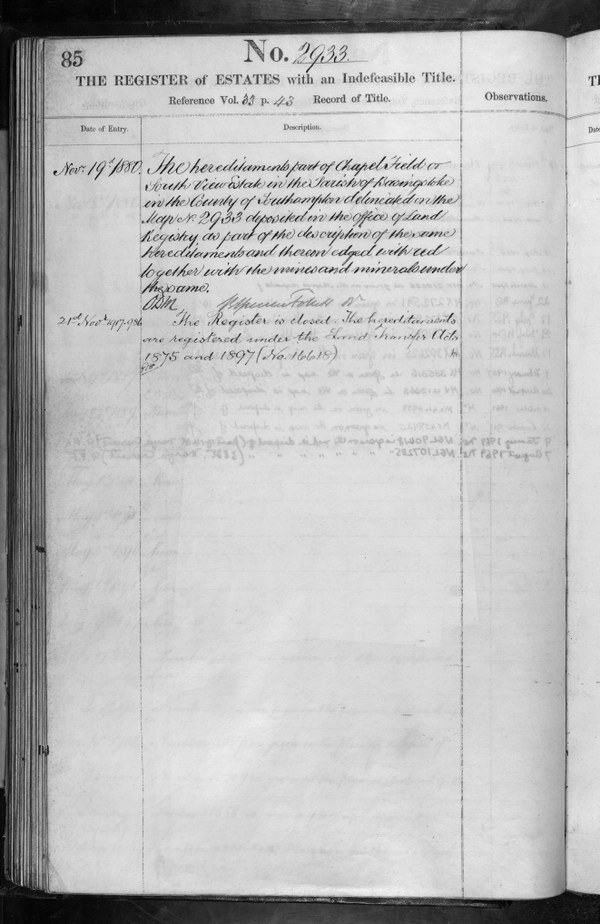 85
No. 2933
THE REGISTER of ESTATES with an Indefeasible Title.
Reference Vol. 32 p. 43 Record of Title.
Observations.
Date of Entry.
Description.
Novr. 19th 1880.
The hereditaments part of Chapel Field or
South View Estate in the Parish of Basingstoke
in the County of Southampton delineated on the
Map No. 2933 deposited in the office of Land
Registry as part of the description of the same
hereditaments and therein edged with red
together with the mines and minerals under
the same.
21st Novr. 1917.
The Register is closed. The hereditaments
are registered under the Land Transfer Acts
1875 and 1897 (No. 16618)